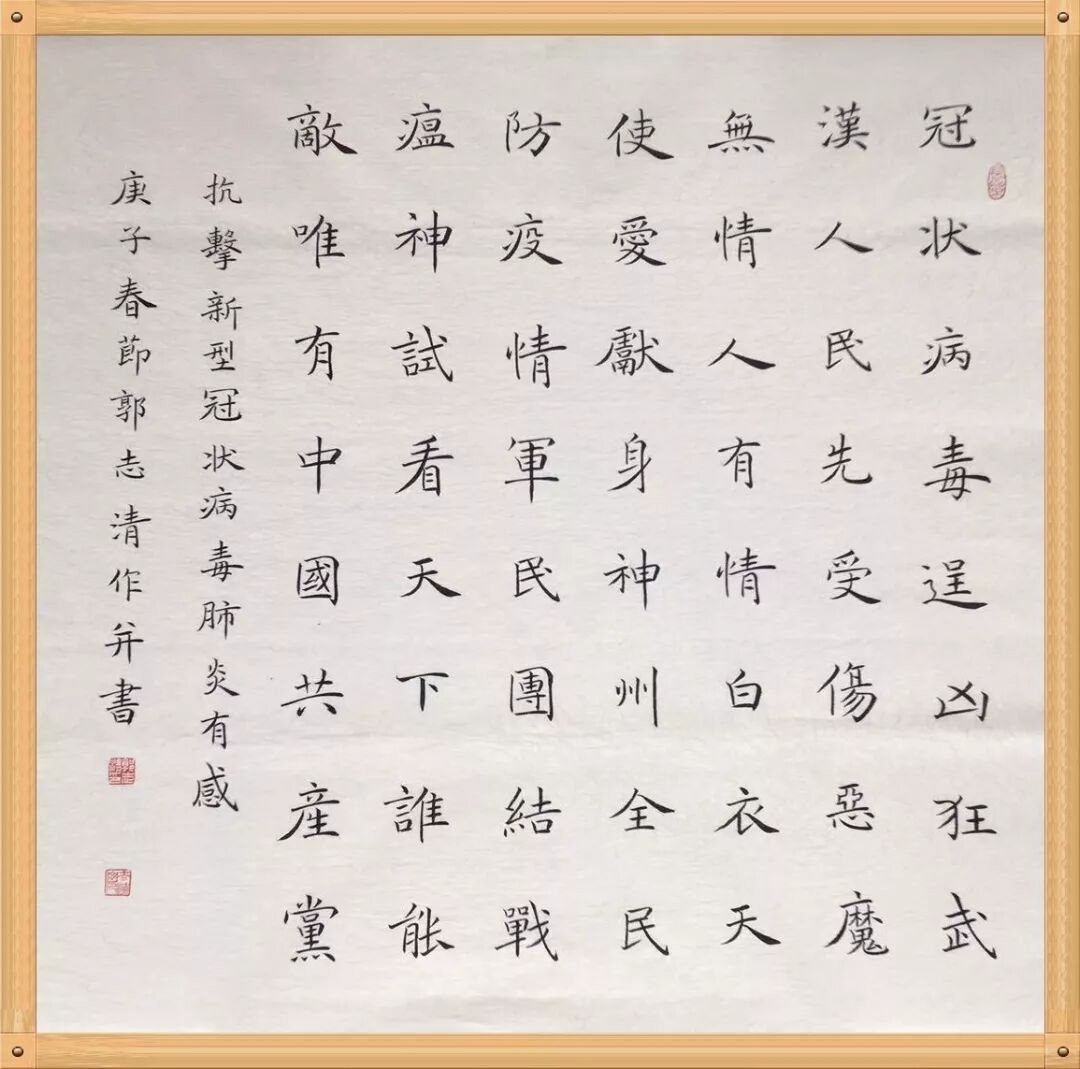 冠状病毒逞凶狂武
漢人民先受傷惡魔
無情人有情白衣天
使愛獻身神州全民
防疫情軍民團結戰
瘟神試看天下誰能
敵唯有中國共産黨
抗擊新型冠状病毒肺炎有感
庚子春節郭志清作并書